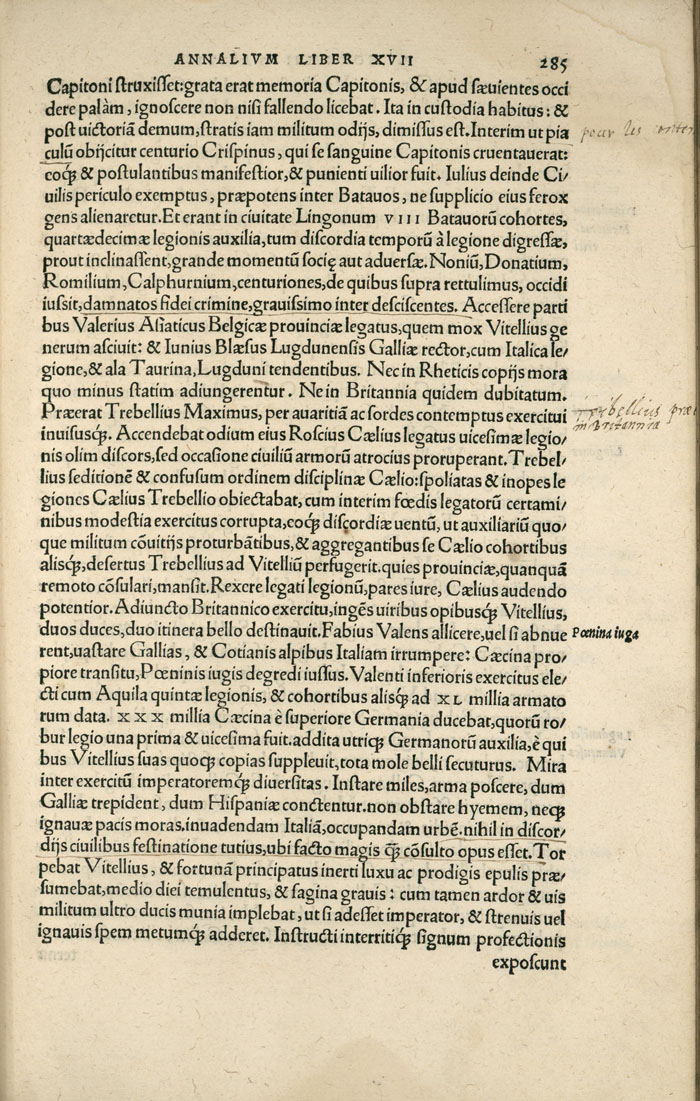 ANNALIVM LIBER XVII 285
Capitoni ſtruxiſſet:grata erat memoria Capitonis, & apud ſæuientes occi
dere palàm, ignoscere non niſi fallendo licebat. Ita in cuſtodia habitus: &
poſt uictoriã demum,ſtratis iam militum odijs, dimiſſus eſt.Interim ut pia
culũ obijcitur centurio Criſpinus, qui ſe sanguine Capitonis cruentauerat:
eoq́ꝫ & poſtulantibus manifeſtior,& punienti uilior fuit. Iulius deinde Ci/
uilis periculo exemptus, præpotens inter Batauos, ne ſupplicio eius ferox
gens alienaretur.Et erant in ciuitate Lingonum VIII Batauorũ cohortes,
quartædecimæ legionis auxilia,tum diſcordia temporũ à legione digreſſæ,
prout inclinaſſent,grande momentũ socię aut aduerſæ. Noniũ, Donatium,
Romilium, Calphurnium,centuriones,de quibus ſupra rettulimus, occidi
iuſſit,damnatos fidei crimine,grauiſſimo inter deſciſcentes. Acceſſere parti
bus Valerius Aſiaticus Belgicæ prouinciæ legatus,quem mox Vitellius ge
nerum aſciuit: & Iunius Blæſus Lugdunenſis Galliæ rector,cum Italica le/
gione,& ala Taurina, Lugduni tendentibus. Nec in Rheticis copijs mora
quo minus ſtatim adiungerentur. Ne in Britannia quidem dubitatum.
Præerat Trebellius Maximus, per auaritiã ac ſordes contemptus exercitui
inuiſusq́ꝫ. Accendebat odium eius Roſcius Cælius legatus uiceſimæ legio/
nis olim diſcors,ſed occaſione ciuiliũ armorũ atrocius proruperant. Trebel/
lius ſeditionẽ & confuſum ordinem diſciplinæ Cælio:ſpoliatas & inopes le
giones Cælius Trebellio obiectabat, cum interim fœdis legatorũ certami/
nibus modeſtia exercitus corrupta,eoq́ꝫ diſcordiæ uentũ, ut auxiliariũ quo/
que militum cõuitijs proturbãtibus,& aggregantibus ſe Cælio cohortibus
alisq́ꝫ,deſertus Trebellius ad Vitelliũ perfugerit.quies prouinciæ,quanquã
remoto cõſulari,manſit. Rexere legati legionũ,pares iure, Cælius audendo
potentior. Adiuncto Britannico exercitu,ingẽs uiribus opibusq́ꝫ Vitellius,
duos duces,duo itinera bello deſtinauit. Fabius Valens allicere,uel ſi abnue
Pœnina iuga
rent,uaſtare Gallias, & Cotianis alpibus Italiam irrumpere: Cæcina pro/
piore tranſitu, Pœninis iugis degredi iuſſus. Valenti inferioris exercitus ele/
cti cum Aquila quintæ legionis, & cohortibus alisq́ꝫ ad XL millia armato
rum data. XXX millia Cæcina è ſuperiore Germania ducebat,quorũ ro/
bur legio una prima & uiceſima fuit.addita utriq́ꝫ Germanorũ auxilia,è qui
bus Vitellius ſuas quoq́ꝫ copias ſuppleuit,tota mole belli ſecuturus. Mira
inter exercitũ imperatoremq́ꝫ diuerſitas. Inſtare miles,arma poſcere, dum
Galliæ trepident, dum Hiſpaniæ conctentur.non obſtare hyemem, neq́ꝫ
ignauæ pacis moras.inuadendam Italiã,occupandam urbẽ.nihil in diſcor/
dijs ciuilibus feſtinatione tutius,ubi facto magis q̃ꝫ cõſulto opus eſſet. Tor
pebat Vitellius, & fortunã principatus inerti luxu ac prodigis epulis præ/
ſumebat,medio diei temulentus, & ſagina grauis: cum tamen ardor & uis
militum ultro ducis munia implebat, ut ſi adeſſet imperator, & ſtrenuis uel
ignauis ſpem metumq́ꝫ adderet. Inſtructi interritiq́ꝫ ſignum profectionis
expoſcunt
pour les
Trebellius præ
in Britannia